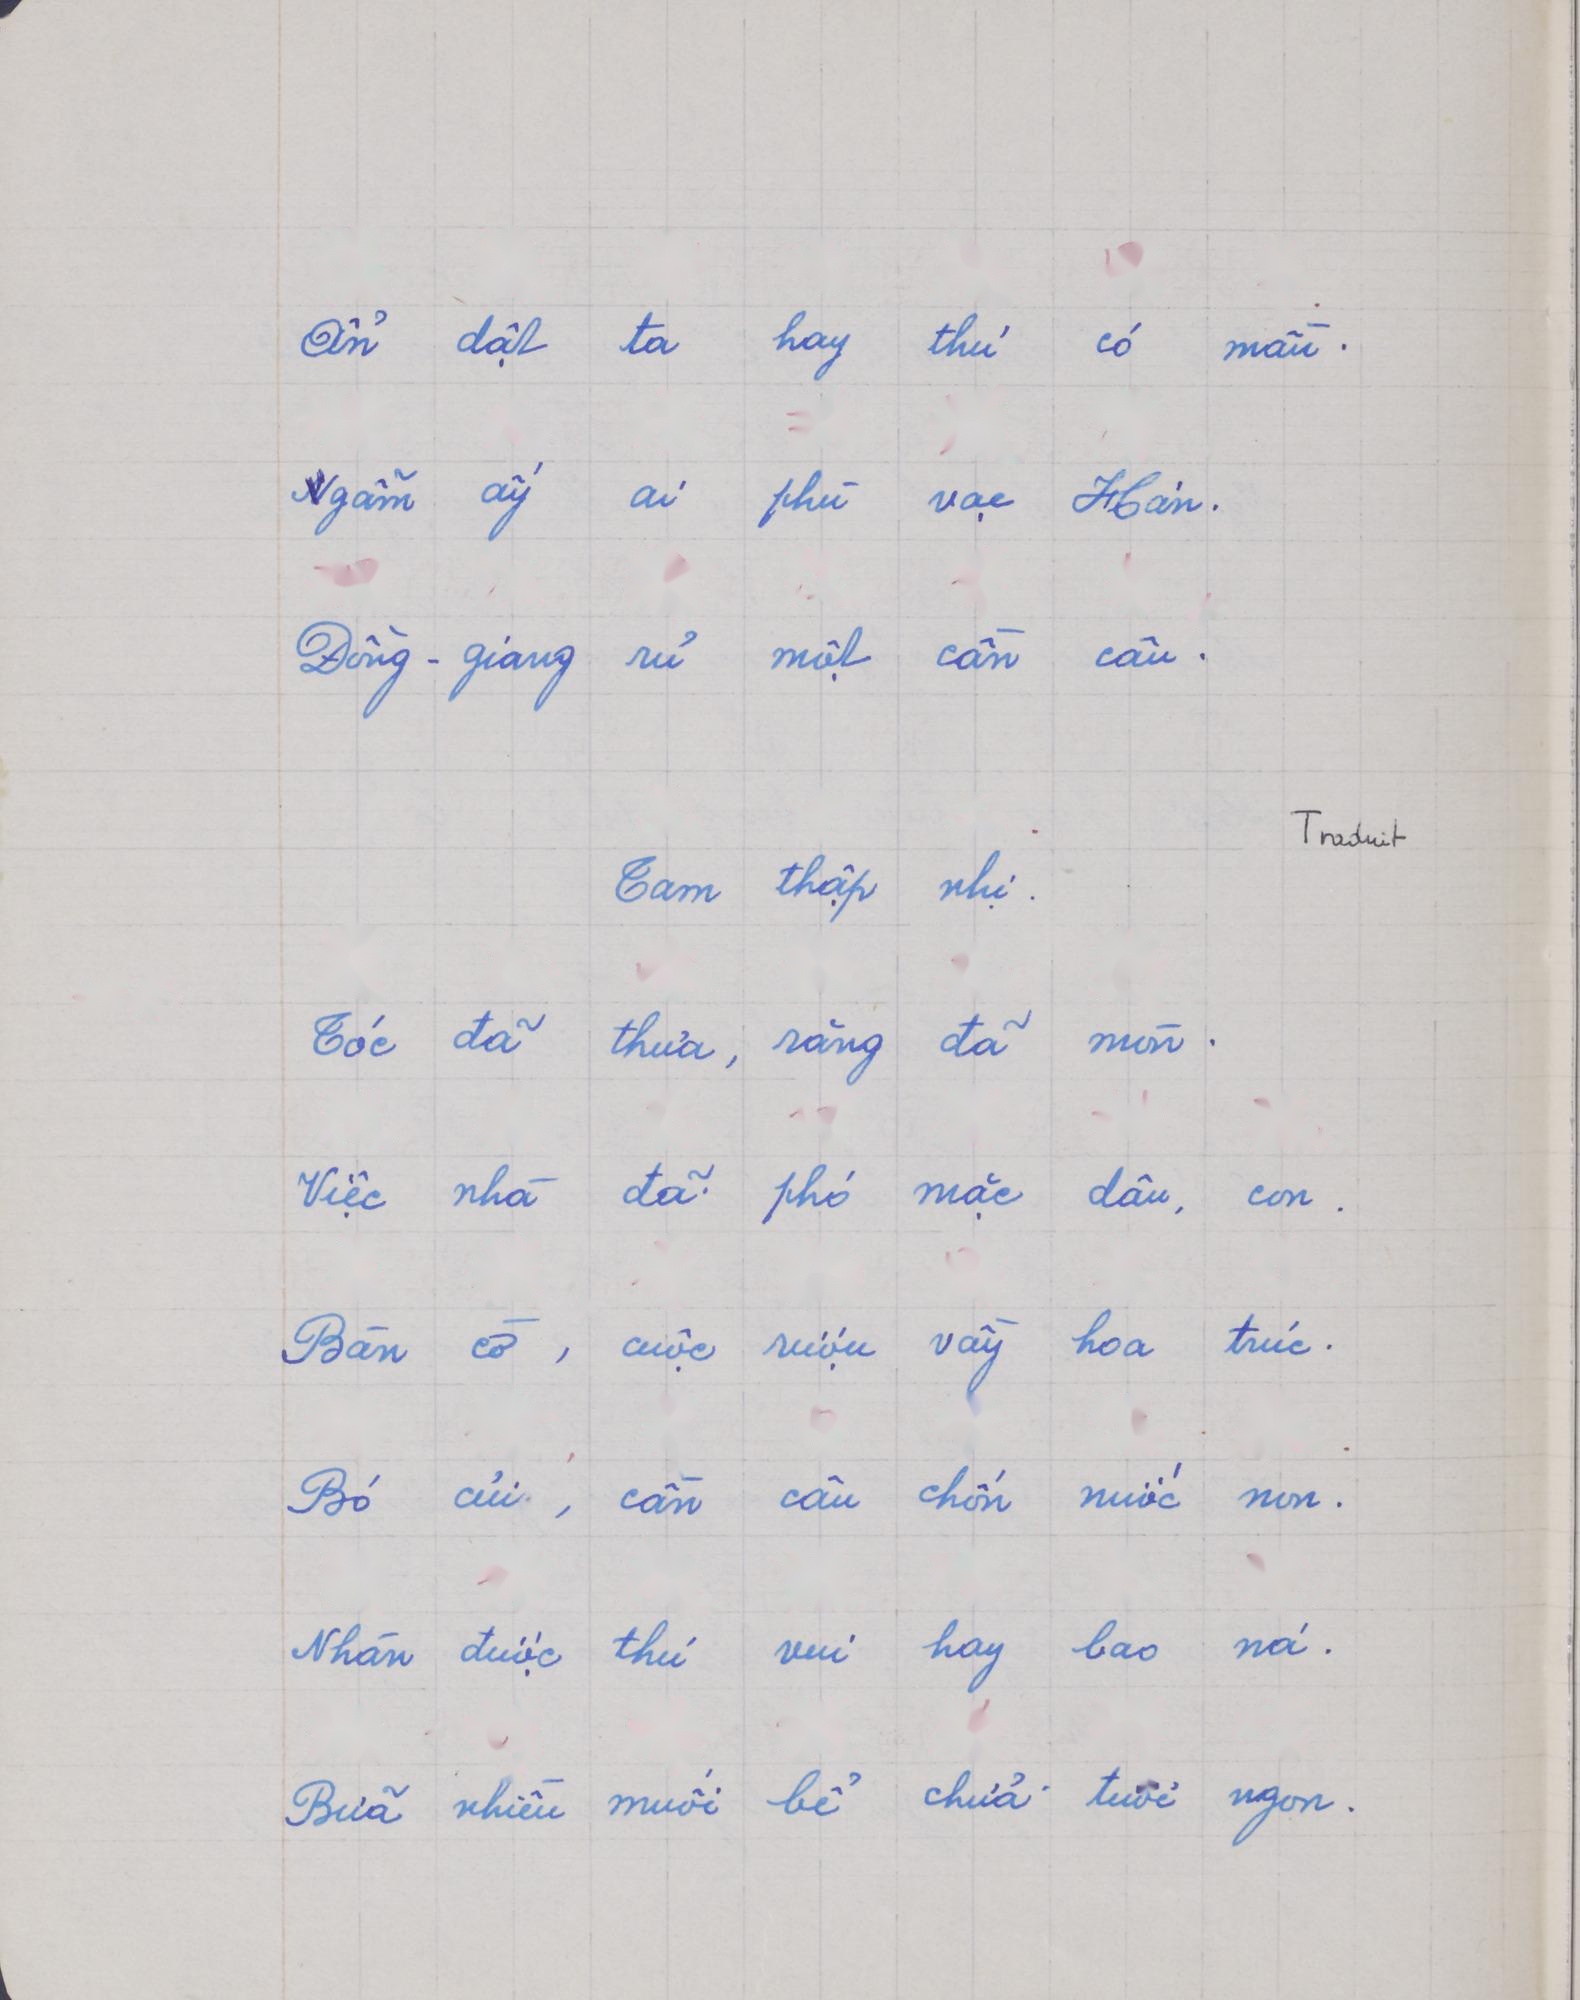 Ẩn dật ta hay thú có mầu.
Ngẫm ấy ai phù vạc Hán.
Đồng-giang rủ một cần câu.
Traduit
Tam thập nhị.
Tóc đã thưa, răng đã mòn.
Việc nhà đã phó mặc dâu, con.
Bàn cờ, cuộc rượu vầy hoa trúc.
Bó củi, cần câu chốn nước non.
Nhàn được thú vui hay bao ná.
Bữa nhiều muối bể chửa tươi ngon.